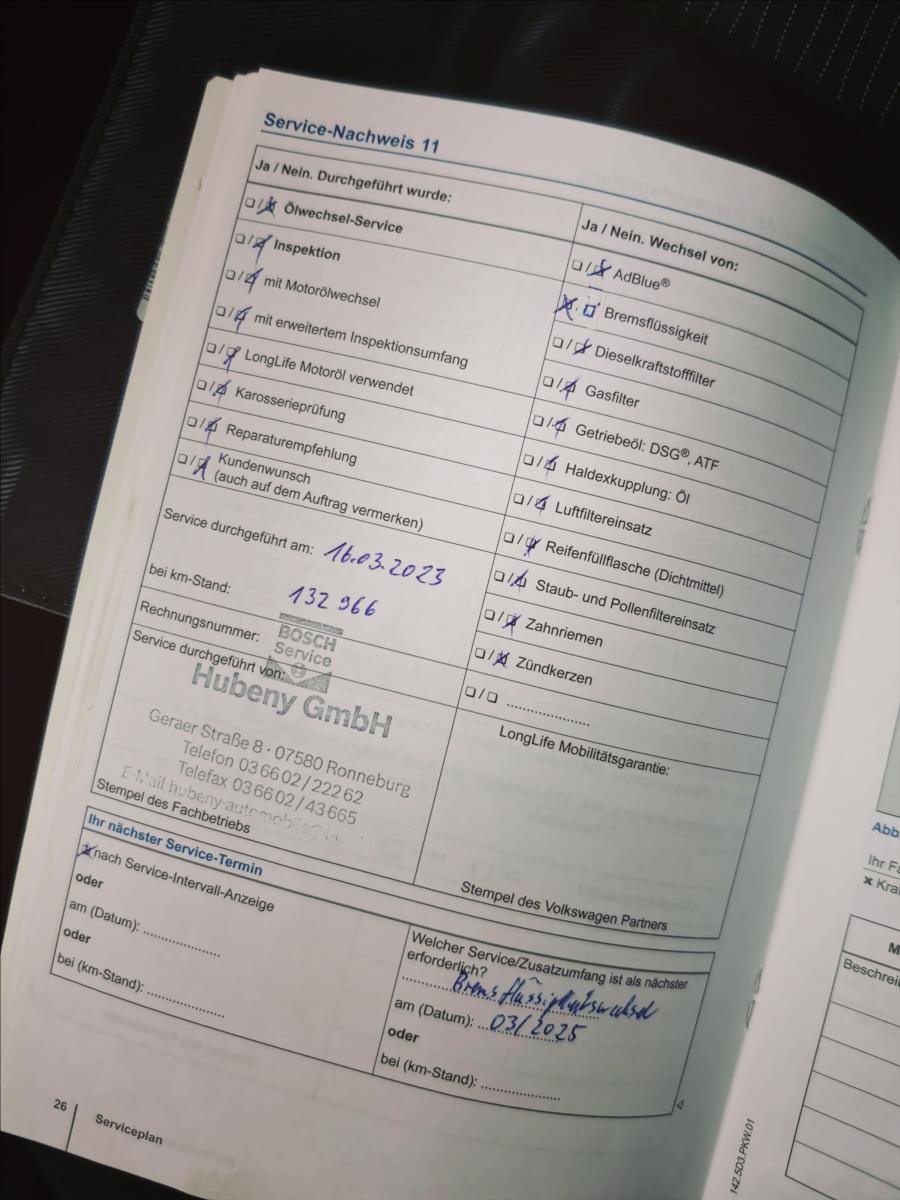 Service-Nachweis 11
Ja / Nein. Durchgeführt wurde:
❏ / ❏ Ölwechsel-Service
❏ / ❏ Inspektion
❏ / ❏ mit Motorölwechsel
❏ / ❏ mit erweitertem Inspektionsumfang
❏ / ❏ LongLife Motoröl verwendet
❏ / ❏ Karosserieprüfung
❏ / ❏ Reparaturempfehlung
❏ / ❏ Kundenwunsch
(auch auf dem Auftrag vermerken)
Service durchgeführt am: 16.03.2023
bei km-Stand: 132 966
Rechnungsnummer:
Service durchgeführt von:
BOSCH
Service
Hubeny GmbH
Geraer Straße 8 · 07580 Ronneburg
Telefon 03 66 02 / 222 62
Telefax 03 66 02 / 43 665
E-Mail hubeny-automobile@
Stempel des Fachbetriebs
Ja / Nein. Wechsel von:
❏ / ❏ AdBlue®
❏ / ❏ Bremsflüssigkeit
❏ / ❏ Dieselkraftstofffilter
❏ / ❏ Gasfilter
❏ / ❏ Getriebeöl: DSG®, ATF
❏ / ❏ Haldexkupplung: Öl
❏ / ❏ Luftfiltereinsatz
❏ / ❏ Reifenfüllflasche (Dichtmittel)
❏ / ❏ Staub- und Pollenfiltereinsatz
❏ / ❏ Zahnriemen
❏ / ❏ Zündkerzen
❏ / ❏ .....................
LongLife Mobilitätsgarantie:
Stempel des Volkswagen Partners
Ihr nächster Service-Termin
❏ nach Service-Intervall-Anzeige
oder
am (Datum): ...................
oder
bei (km-Stand): ...................
Welcher Service/Zusatzumfang ist als nächster
erforderlich?
Bremsflüssigkeitswechsel
am (Datum): 03/2025
oder
bei (km-Stand): ...................
26
Serviceplan
142.5D3.PKW.01
Abb
Ihr Fa
× Kra
M
Beschrei